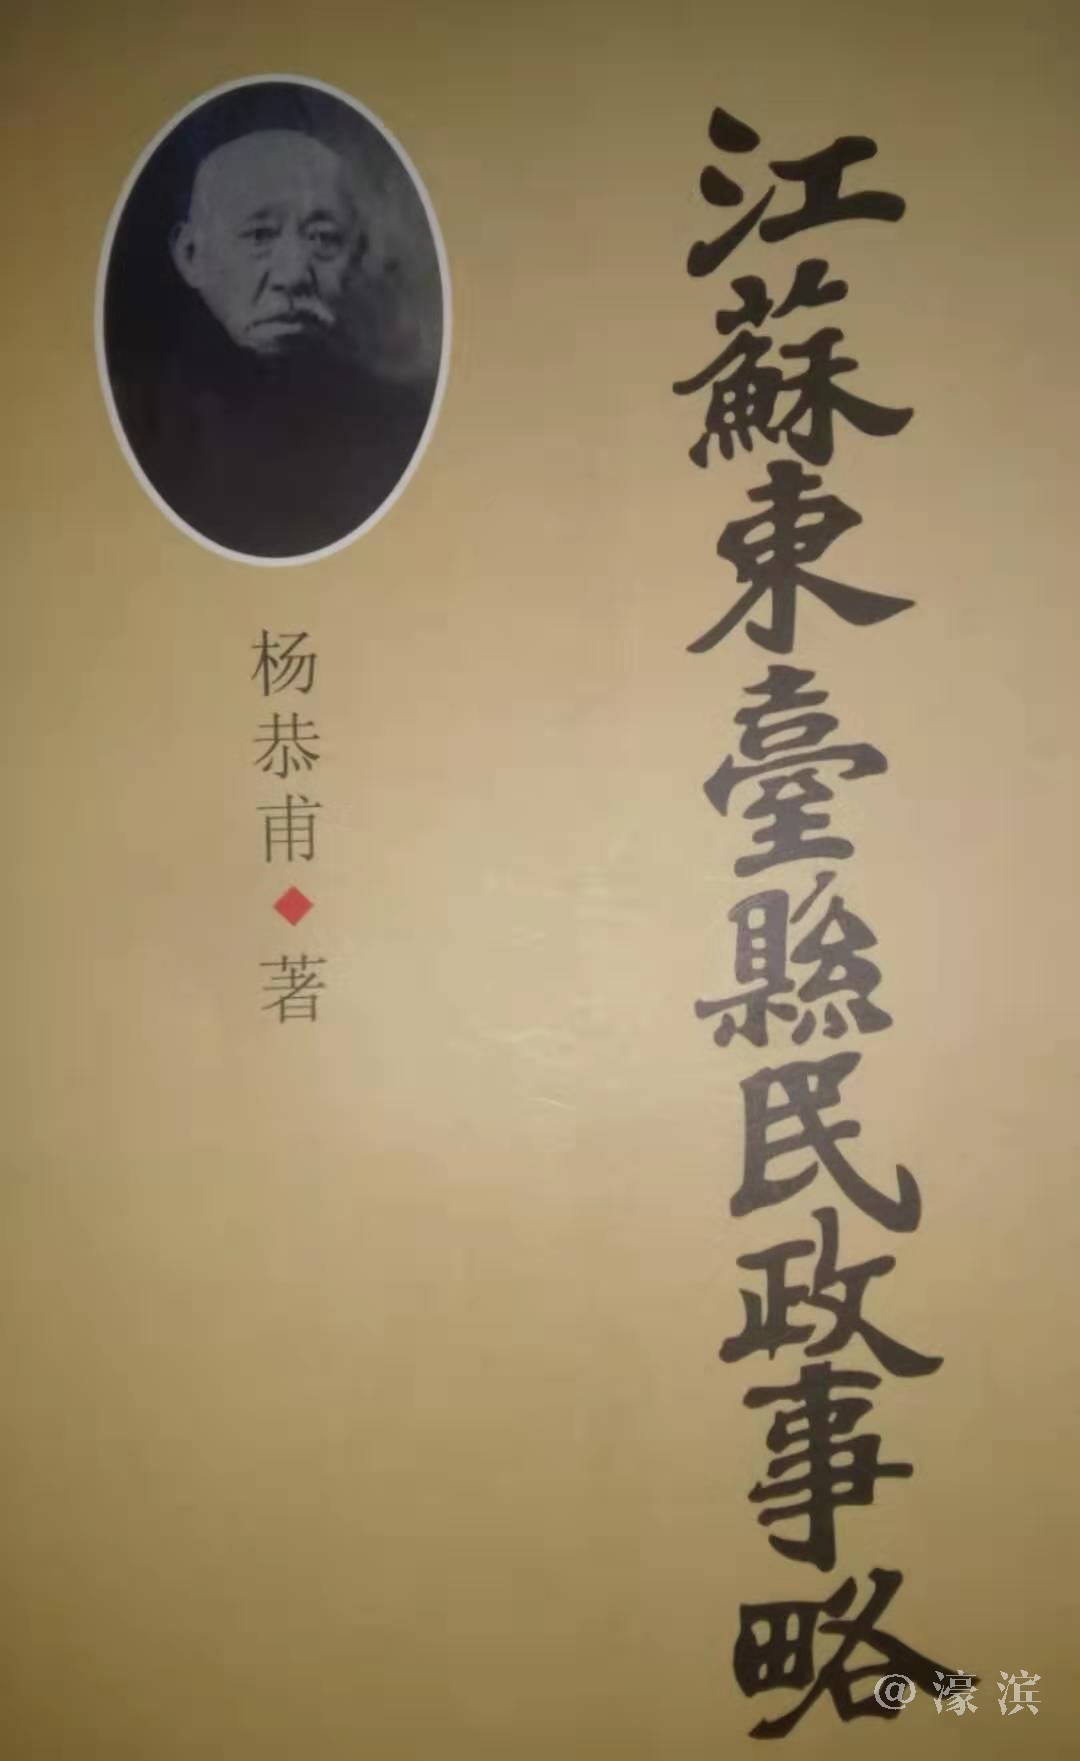 江蘇東臺縣民政事略
杨恭甫◆著
@濠滨